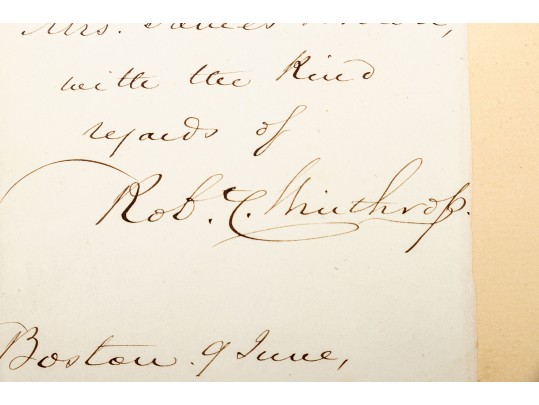 Mrs. James
with the kind
regards of
Rob. C. Winthrop.
Boston. 9 June,